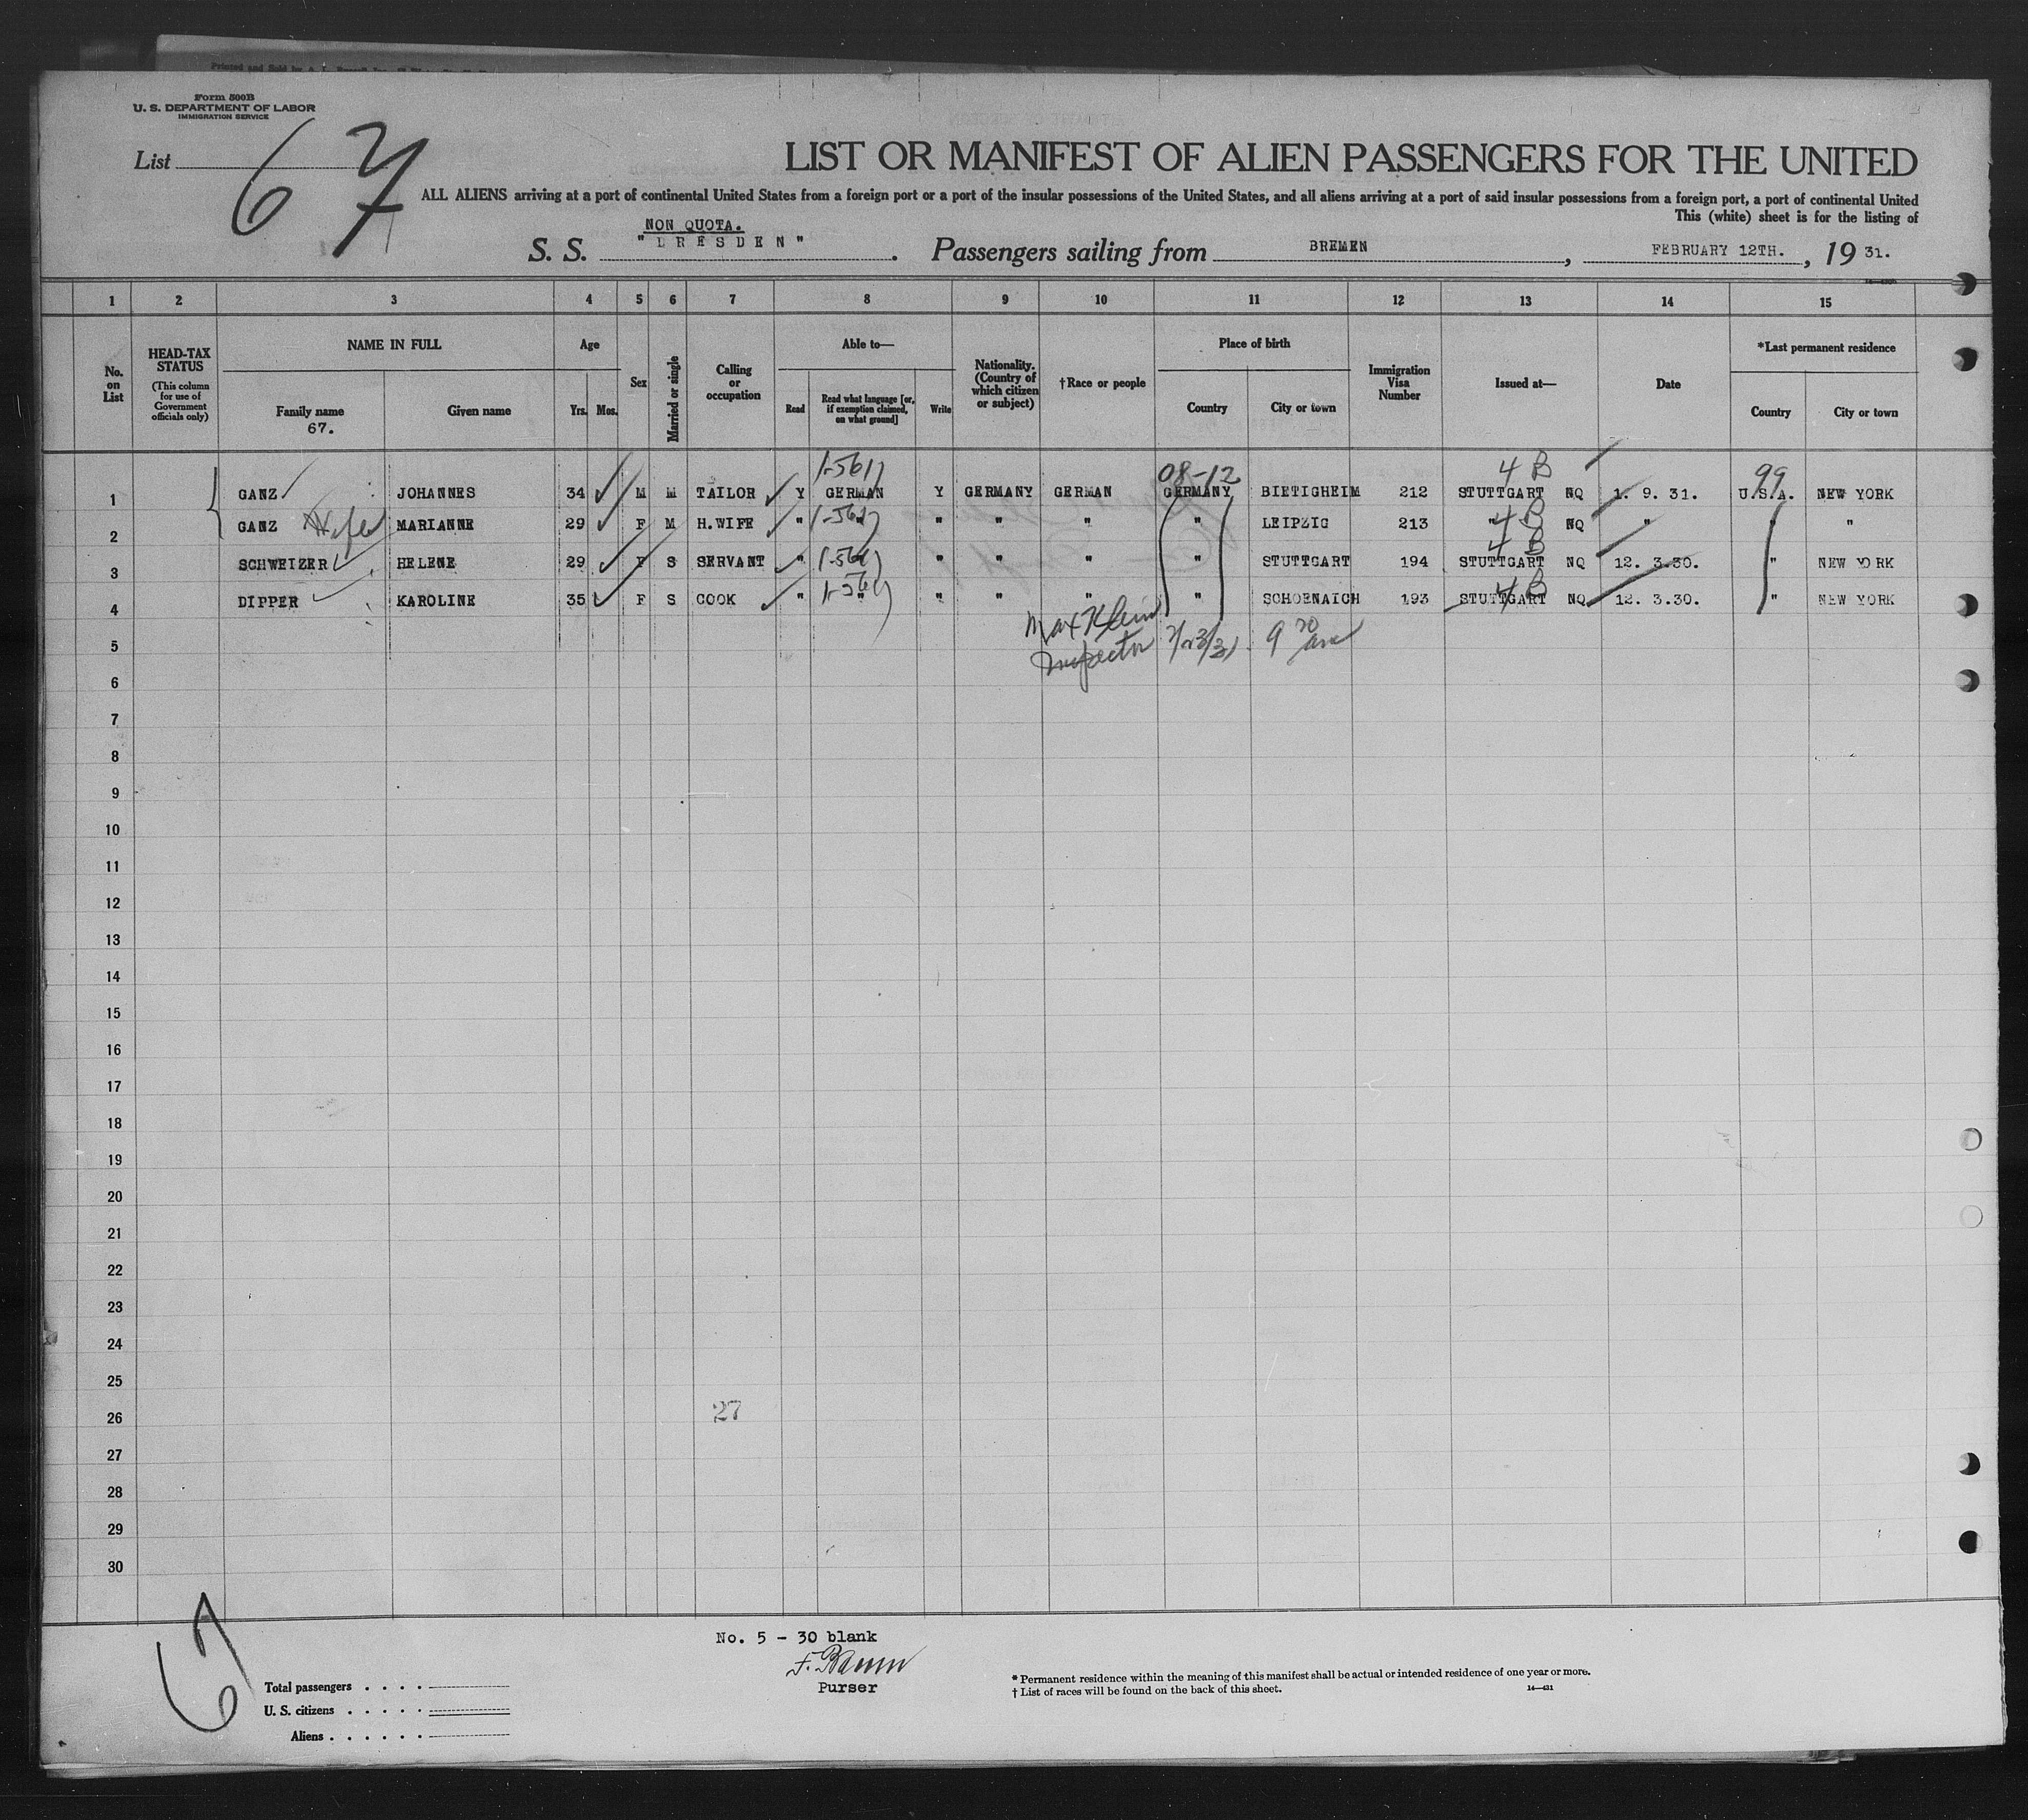 Form 500B
U. S. DEPARTMENT OF LABOR
IMMIGRATION SERVICE
List 67
LIST OR MANIFEST OF ALIEN PASSENGERS FOR THE UNITED
ALL ALIENS arriving at a port of continental United States from a foreign port or a port of the insular possessions of the United States, and all aliens arriving at a port of said insular possessions from a foreign port, a port of continental United
This (white) sheet is for the listing of
NON QUOTA.
S. S. "DRESDEN". Passengers sailing from BREMEN, FEBRUARY 12TH., 19 31.
1 2 3 4 5 6 7 8 9 10 11 12 13 14 15
No. on List
HEAD-TAX STATUS (This column for use of Government officials only)
NAME IN FULL
Family name
67.
Given name
Age
Yrs. Mos.
Sex
Married or single
Calling or occupation
Able to—
Read
Read what language [or, if exemption claimed, on what ground]
Write
Nationality. (Country of which citizen or subject)
†Race or people
Place of birth
Country
City or town
Immigration Visa Number
Issued at—
Date
*Last permanent residence
Country
City or town
08-12 4 B 99
1 GANZ JOHANNES 34 M M TAILOR Y GERMAN Y GERMANY GERMAN GERMANY BIETIGHEIM 212 STUTTGART NQ 1. 9. 31. U.S.A. NEW YORK
4 B
2 GANZ Wife MARIANNE 29 F M H.WIFE " " " " " " LEIPZIG 213 " NQ " " "
4 B
3 SCHWEIZER HELENE 29 F S SERVANT " " " " " " STUTTGART 194 STUTTGART NQ 12. 3.30. " NEW YORK
4 B
4 DIPPER KAROLINE 35 F S COOK " " " " " " SCHOENAICH 193 STUTTGART NQ 12. 3.30. " NEW YORK
Max Klein
5 Inspector 2/23/31 9 30 am
6
7
8
9
10
11
12
13
14
15
16
17
18
19
20
21
22
23
24
25
26 27
27
28
29
30
67
No. 5 - 30 blank
Purser
Total passengers
U. S. citizens
Aliens
* Permanent residence within the meaning of this manifest shall be actual or intended residence of one year or more.
† List of races will be found on the back of this sheet.
14—431